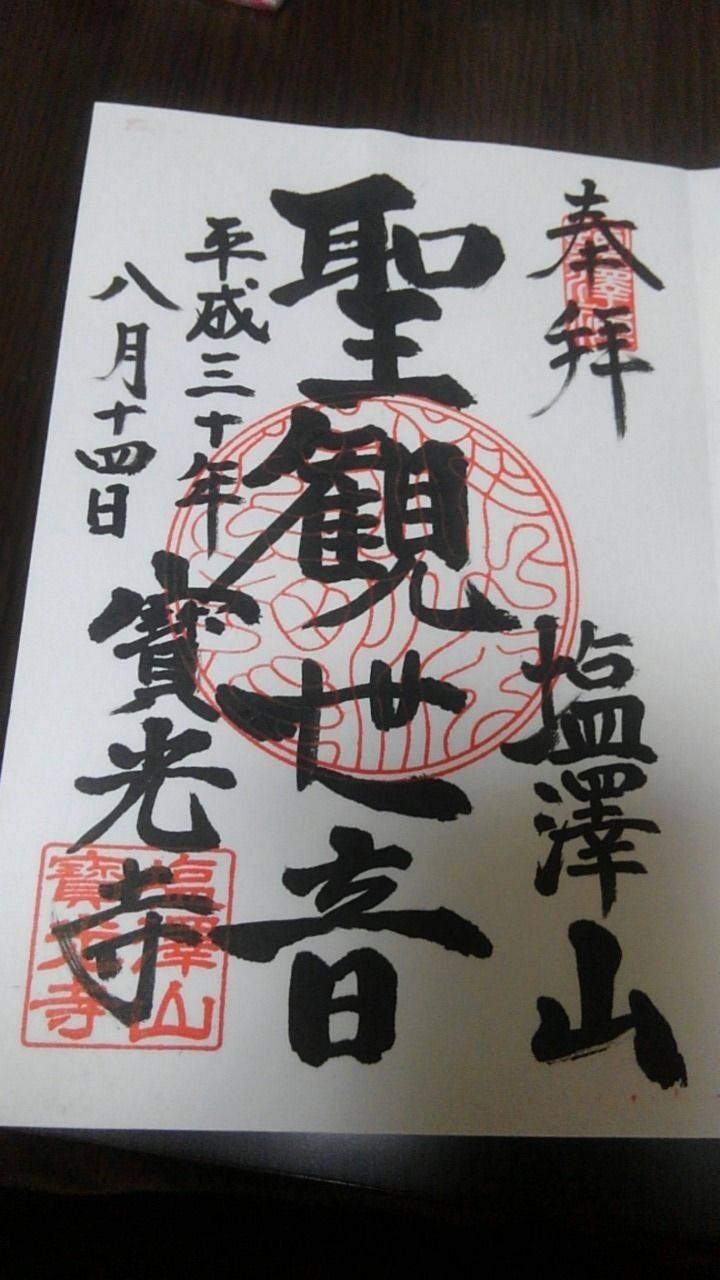 奉拝
塩澤山
聖観世音
平成三十年
八月十四日
寳光寺
塩澤山
寳光寺